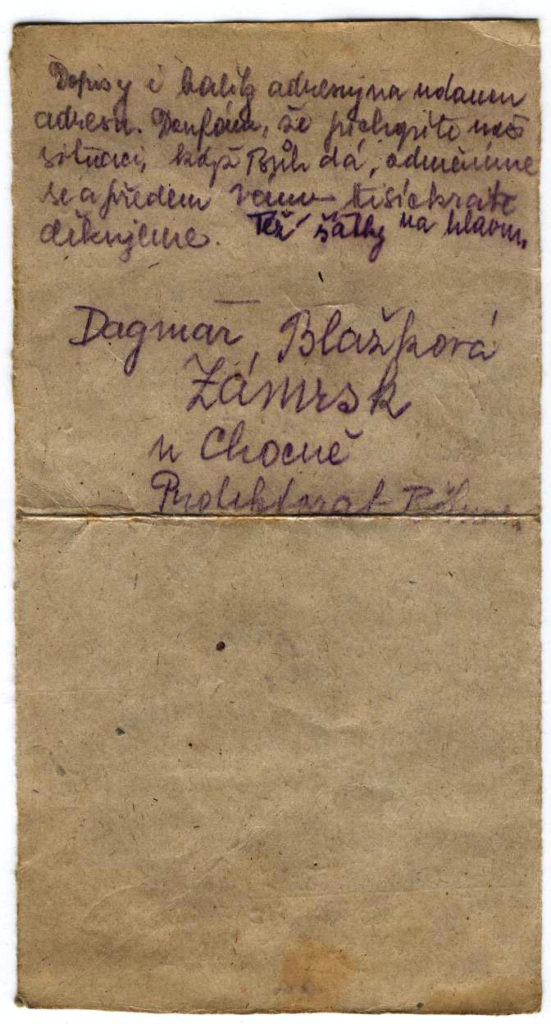 Dopisy i balíky adresuj na udanou
adresu. Doufám, že pochopíte naši
situaci, když Bůh dá, odměníme
se a předem Vám tisíckráte
děkujeme. Též šátky na hlavu.
Dagmar Blažková
Zámrsk
u Chocně
Protektorat Böhmen